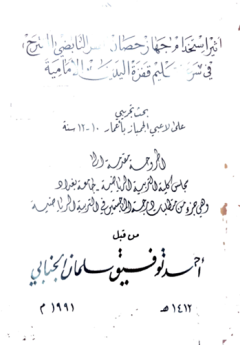 اثر استخدام جهاز حصان القفز النابضي المتحرك
في سرعة تعليم قفزة اليدين الأمامية
بحث تجريبي
على لاعبي الجمباز بأعمار ١٠-١٢ سنة
اطروحة مقدمة الى
مجلس كلية التربية الرياضية - جامعة بغداد
وهي جزء من متطلبات درجة الماجستير في التربية الرياضية
من قبل
أحمد توفيق سلمان الجنابي
١٤١٢ هـ ١٩٩١ م